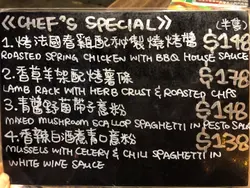 《CHEF'S SPECIAL》
1.烤法國春雞配秘製燒烤醬 $148
ROASTED SPRING CHICKEN WITH BBQ HOUSE SAUCE
2.香草羊架配烤薯條 $178
LAMB RACK WITH HERB CRUST & ROASTED CHIPS
3.青醬野菌帶子意粉 $148
MIXED MUSHROOM SCALLOP SPAGHETTI IN PESTO SAUCE
4.香辣白酒煮青口意粉 $138
MUSSELS WITH CELERY & CHILI SPAGHETTI IN
WHITE WINE SAUCE